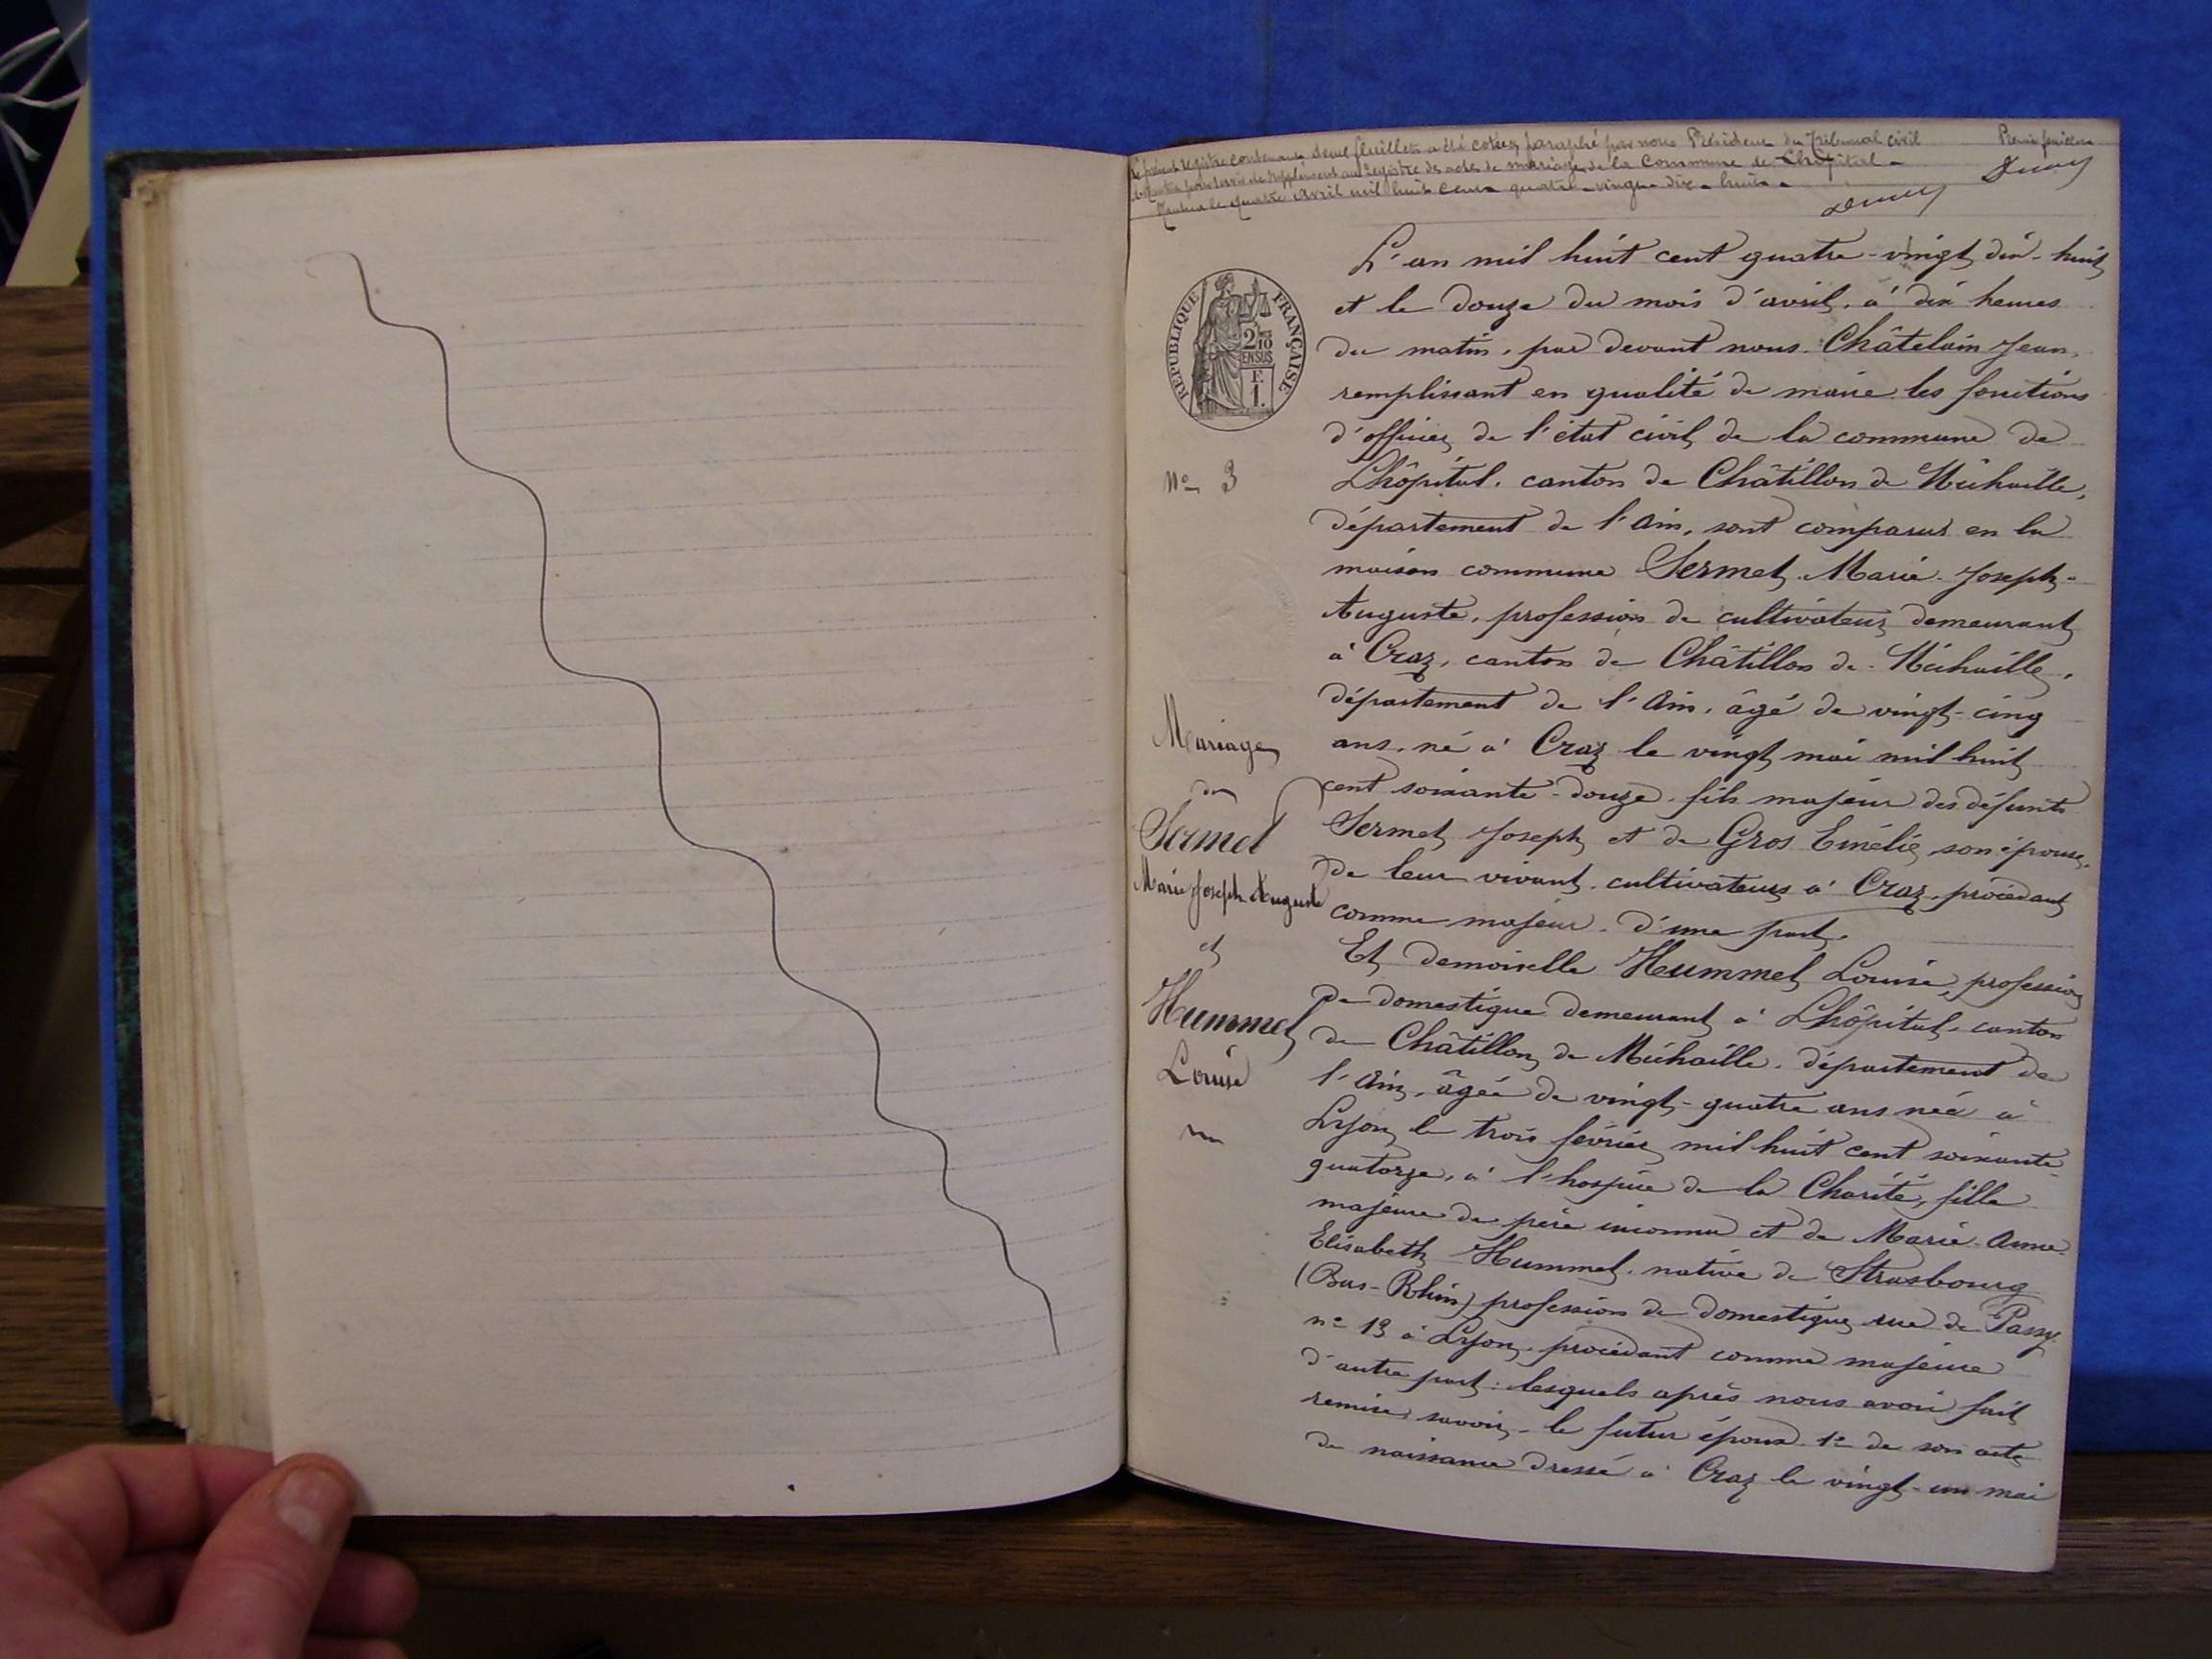 Le présent registre contenant deux feuillets a été coté et paraphé par nous Président du Tribunal civil
de Nantua pour servir de supplément au registre des actes de mariage de la commune de Lhôpital -
Nantua le quatre avril mil huit cent quatre-vingt-dix-huit -
Premier feuillet
L'an mil huit cent quatre-vingt dix-huit
et le douze du mois d'avril, à dix heures
du matin, par devant nous Châtelain Jean,
remplissant en qualité de maire les fonctions
d'officier de l'état civil de la commune de
Lhôpital, canton de Châtillon de Michaille,
département de l'Ain, sont comparus en la
maison commune Sermet Marie-Joseph-
Auguste, profession de cultivateur demeurant
à Craz, canton de Châtillon de Michaille,
département de l'Ain, âgé de vingt-cinq
ans, né à Craz le vingt mai mil huit
cent soixante-douze, fils majeur des défunts
Sermet Joseph et de Gros Emélie son épouse,
de leur vivant cultivateurs à Craz, procédant
comme majeur, d'une part.
Et demoiselle Hummel Louise, profession
de domestique demeurant à Lhôpital, canton
de Châtillon de Michaille, département de
l'Ain, âgée de vingt-quatre ans née à
Lyon le trois février mil huit cent soixante-
quatorze, à l'hospice de la Charité, fille
majeure de père inconnu et de Marie-Anne-
Elisabeth Hummel, native de Strasbourg
(Bas-Rhin) profession de domestique rue de Passy
n° 13 à Lyon, procédant comme majeure
d'autre part: lesquels après nous avoir fait
remise, savoir, le futur époux 1° de son acte
de naissance dressé à Craz le vingt-un mai
REPUBLIQUE FRANÇAISE
2/10
EN SUS
E.
1.
N° 3
Mariage
de
Sermet
Marie Joseph Auguste
et
Hummel
Louise